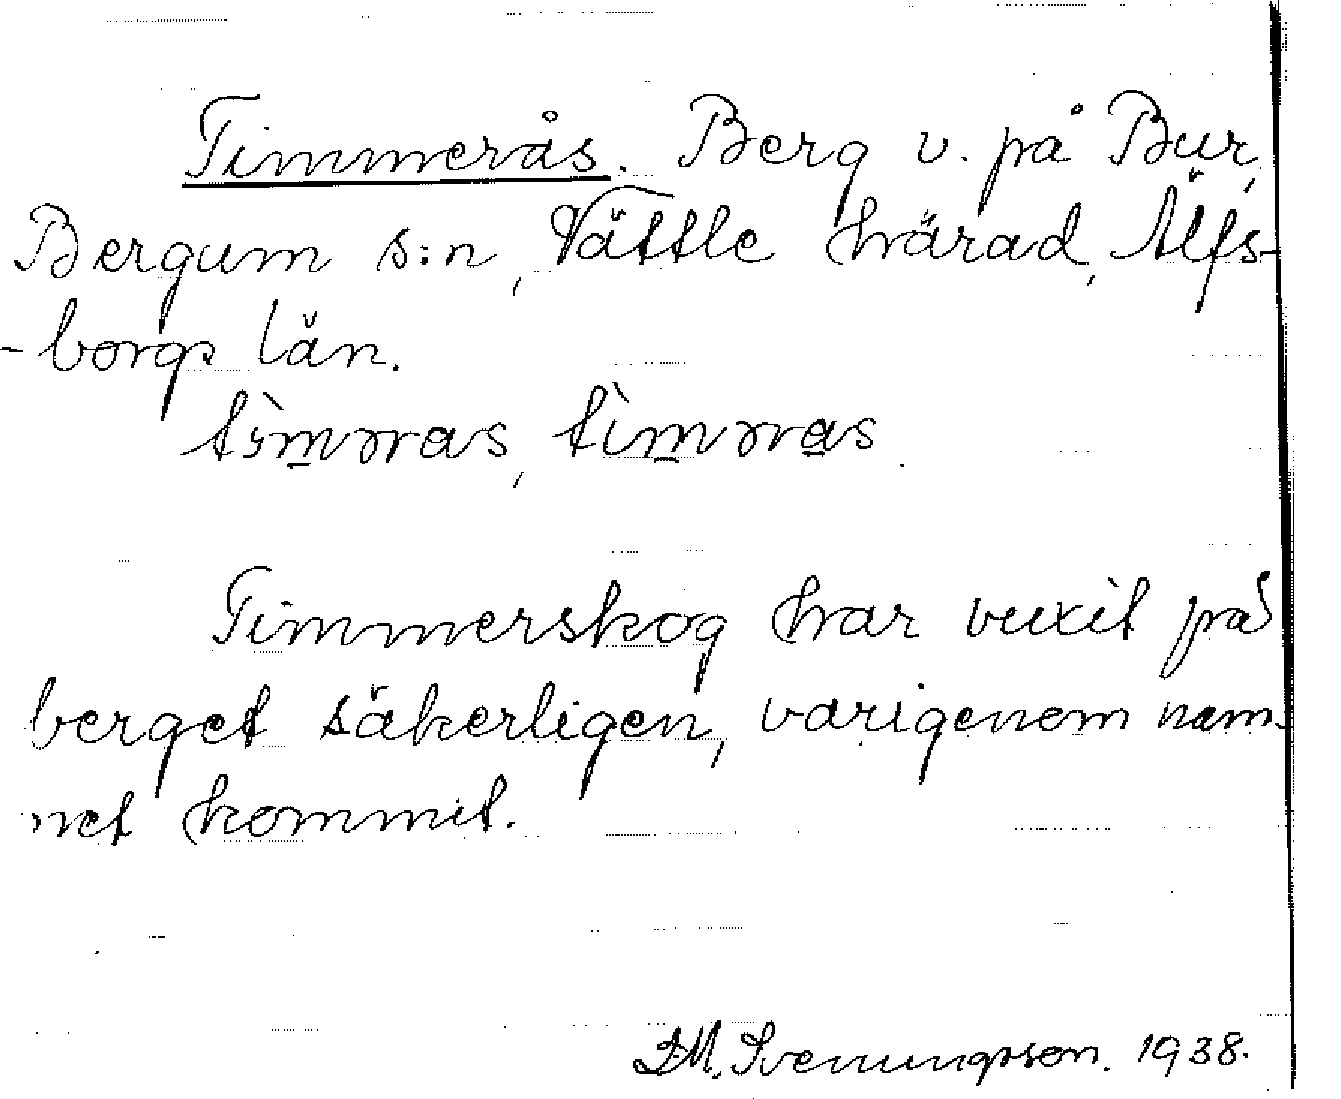 Timmerås. Berg v. på Bur,
Bergum s:n, Vättle härad, Älfs-
-borgs län.
Timmerskog har vuxit på
berget säkerligen, varigenom nam-
net kommit.
Svenungsson. 1938.